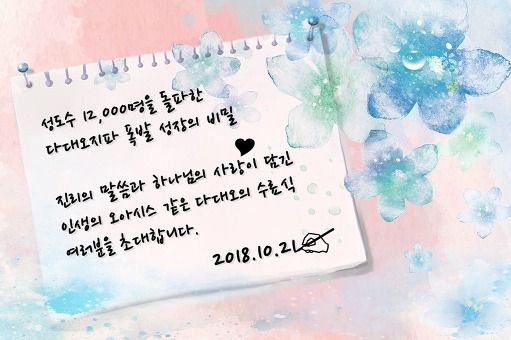 성도수 12,000명을 돌파한
다대오지파 폭발 성장의 비밀
진리의 말씀과 하나님의 사랑이 담긴
인생의 오아시스 같은 다대오의 수료식
여러분을 초대합니다.
2018.10.21